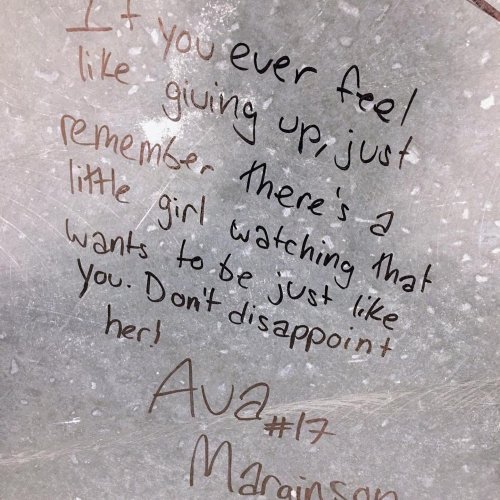 If you ever feel
like giving up, just
remember there's a
little girl watching that
wants to be just like
you. Don't disappoint
her!
Ava
#17
Marginson